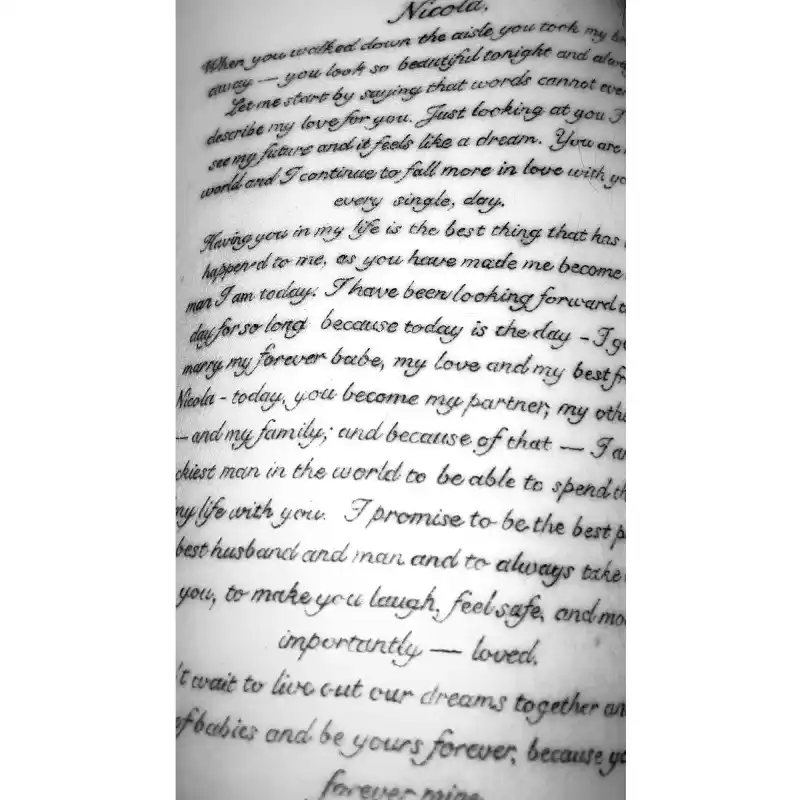 Nicola,
When you walked down the aisle you took my
away — you look so beautiful tonight and
Let me start by saying that words cannot
describe my love for you. Just looking at you I
see my future and it feels like a dream. You are
world and I continue to fall more in love with
every single, day.
Having you in my life is the best thing that has
happened to me, as you have made me become
man I am today. I have been looking forward
day for so long because today is the day - I
marry my forever babe, my love and my best
Nicola - today, you become my partner, my
— and my family; and because of that — I
man in the world to be able to spend
my life with you. I promise to be the best
best husband and man and to always take
you, to make you laugh, feel safe, and
importantly — loved.
wait to live out our dreams together
of babies and be yours forever, because
forever mine